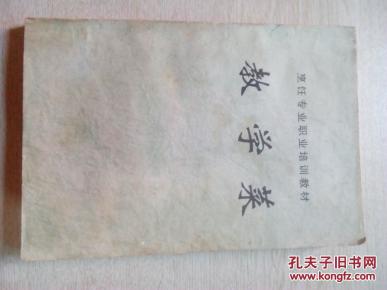 烹饪专业职业培训教材
教学菜
孔夫子旧书网
www.kongfz.com